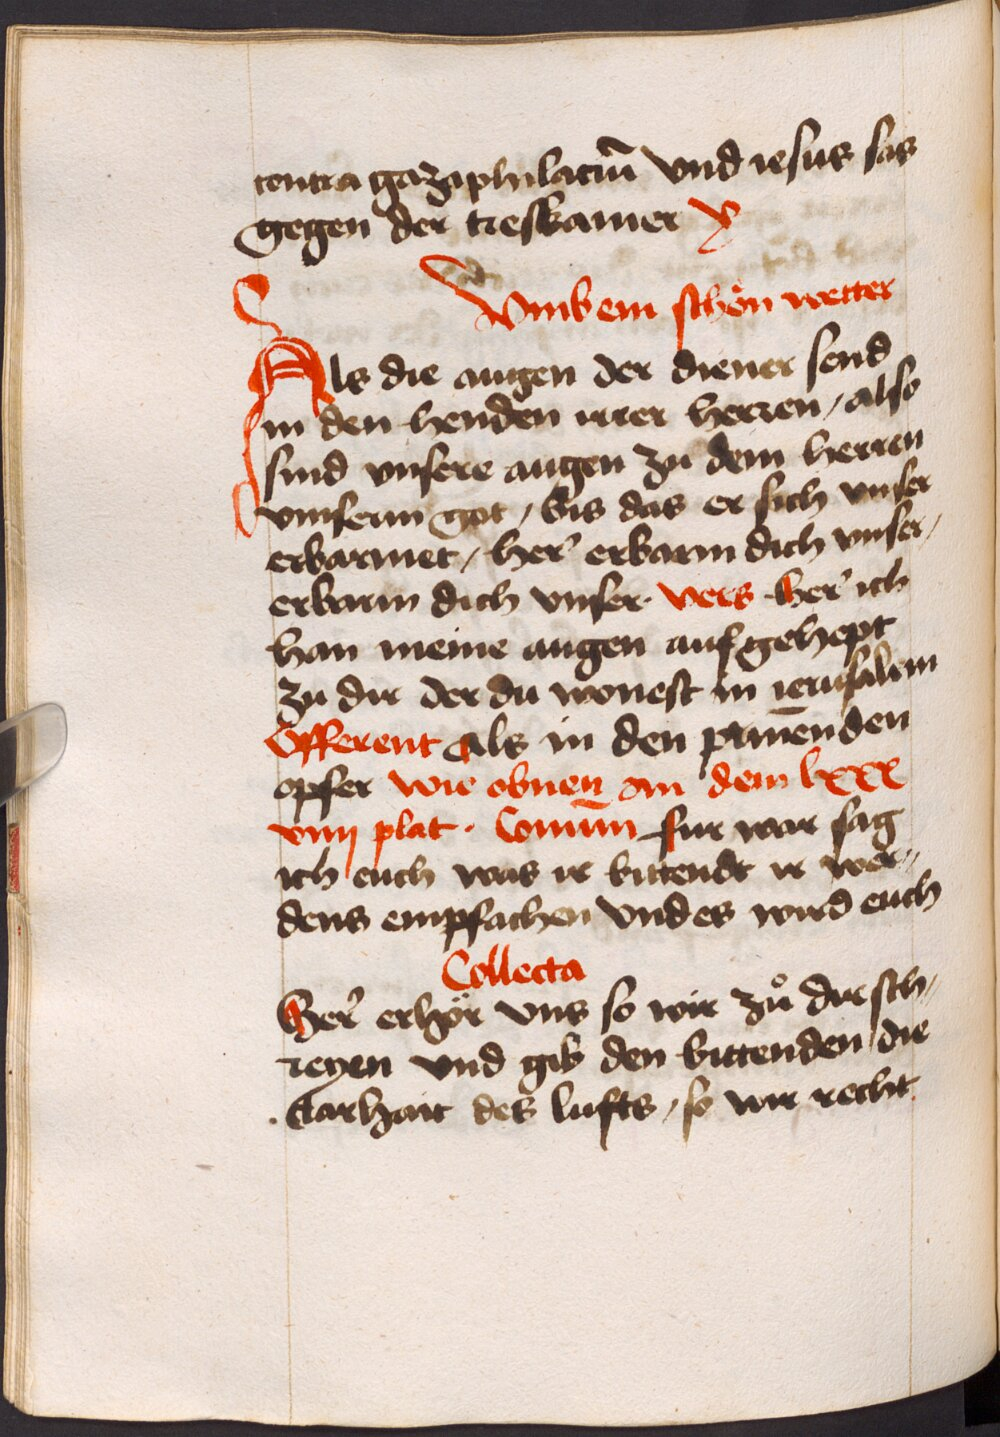 contra gazaphilaciū vnd iesus sas
gegen der treskamer x
Vmb ein schön wetter
Als die augen der diener send
in den henden irrer herren / also
sind vnsere augen zu dem herren
vnnserm got / bis das er sich vnser
erbarmet / her' erbarm dich vnser /
erbarm dich vnser. vers her' ich
han meine augen aufgehept
zu dir der du wonest in ierusalem
Offerent Als in den pimēnden
opfer wie obnen an dem lxxx
viiij plat. Comūn fur war sag
ich euch was ir bittendt ir wer/
dens empfachen vnd es wird euch
Collecta
Her' erhör vns so wir zů dir sch/
reyen vnd gib den bittenden die
. clarhait des lufts / so wir recht